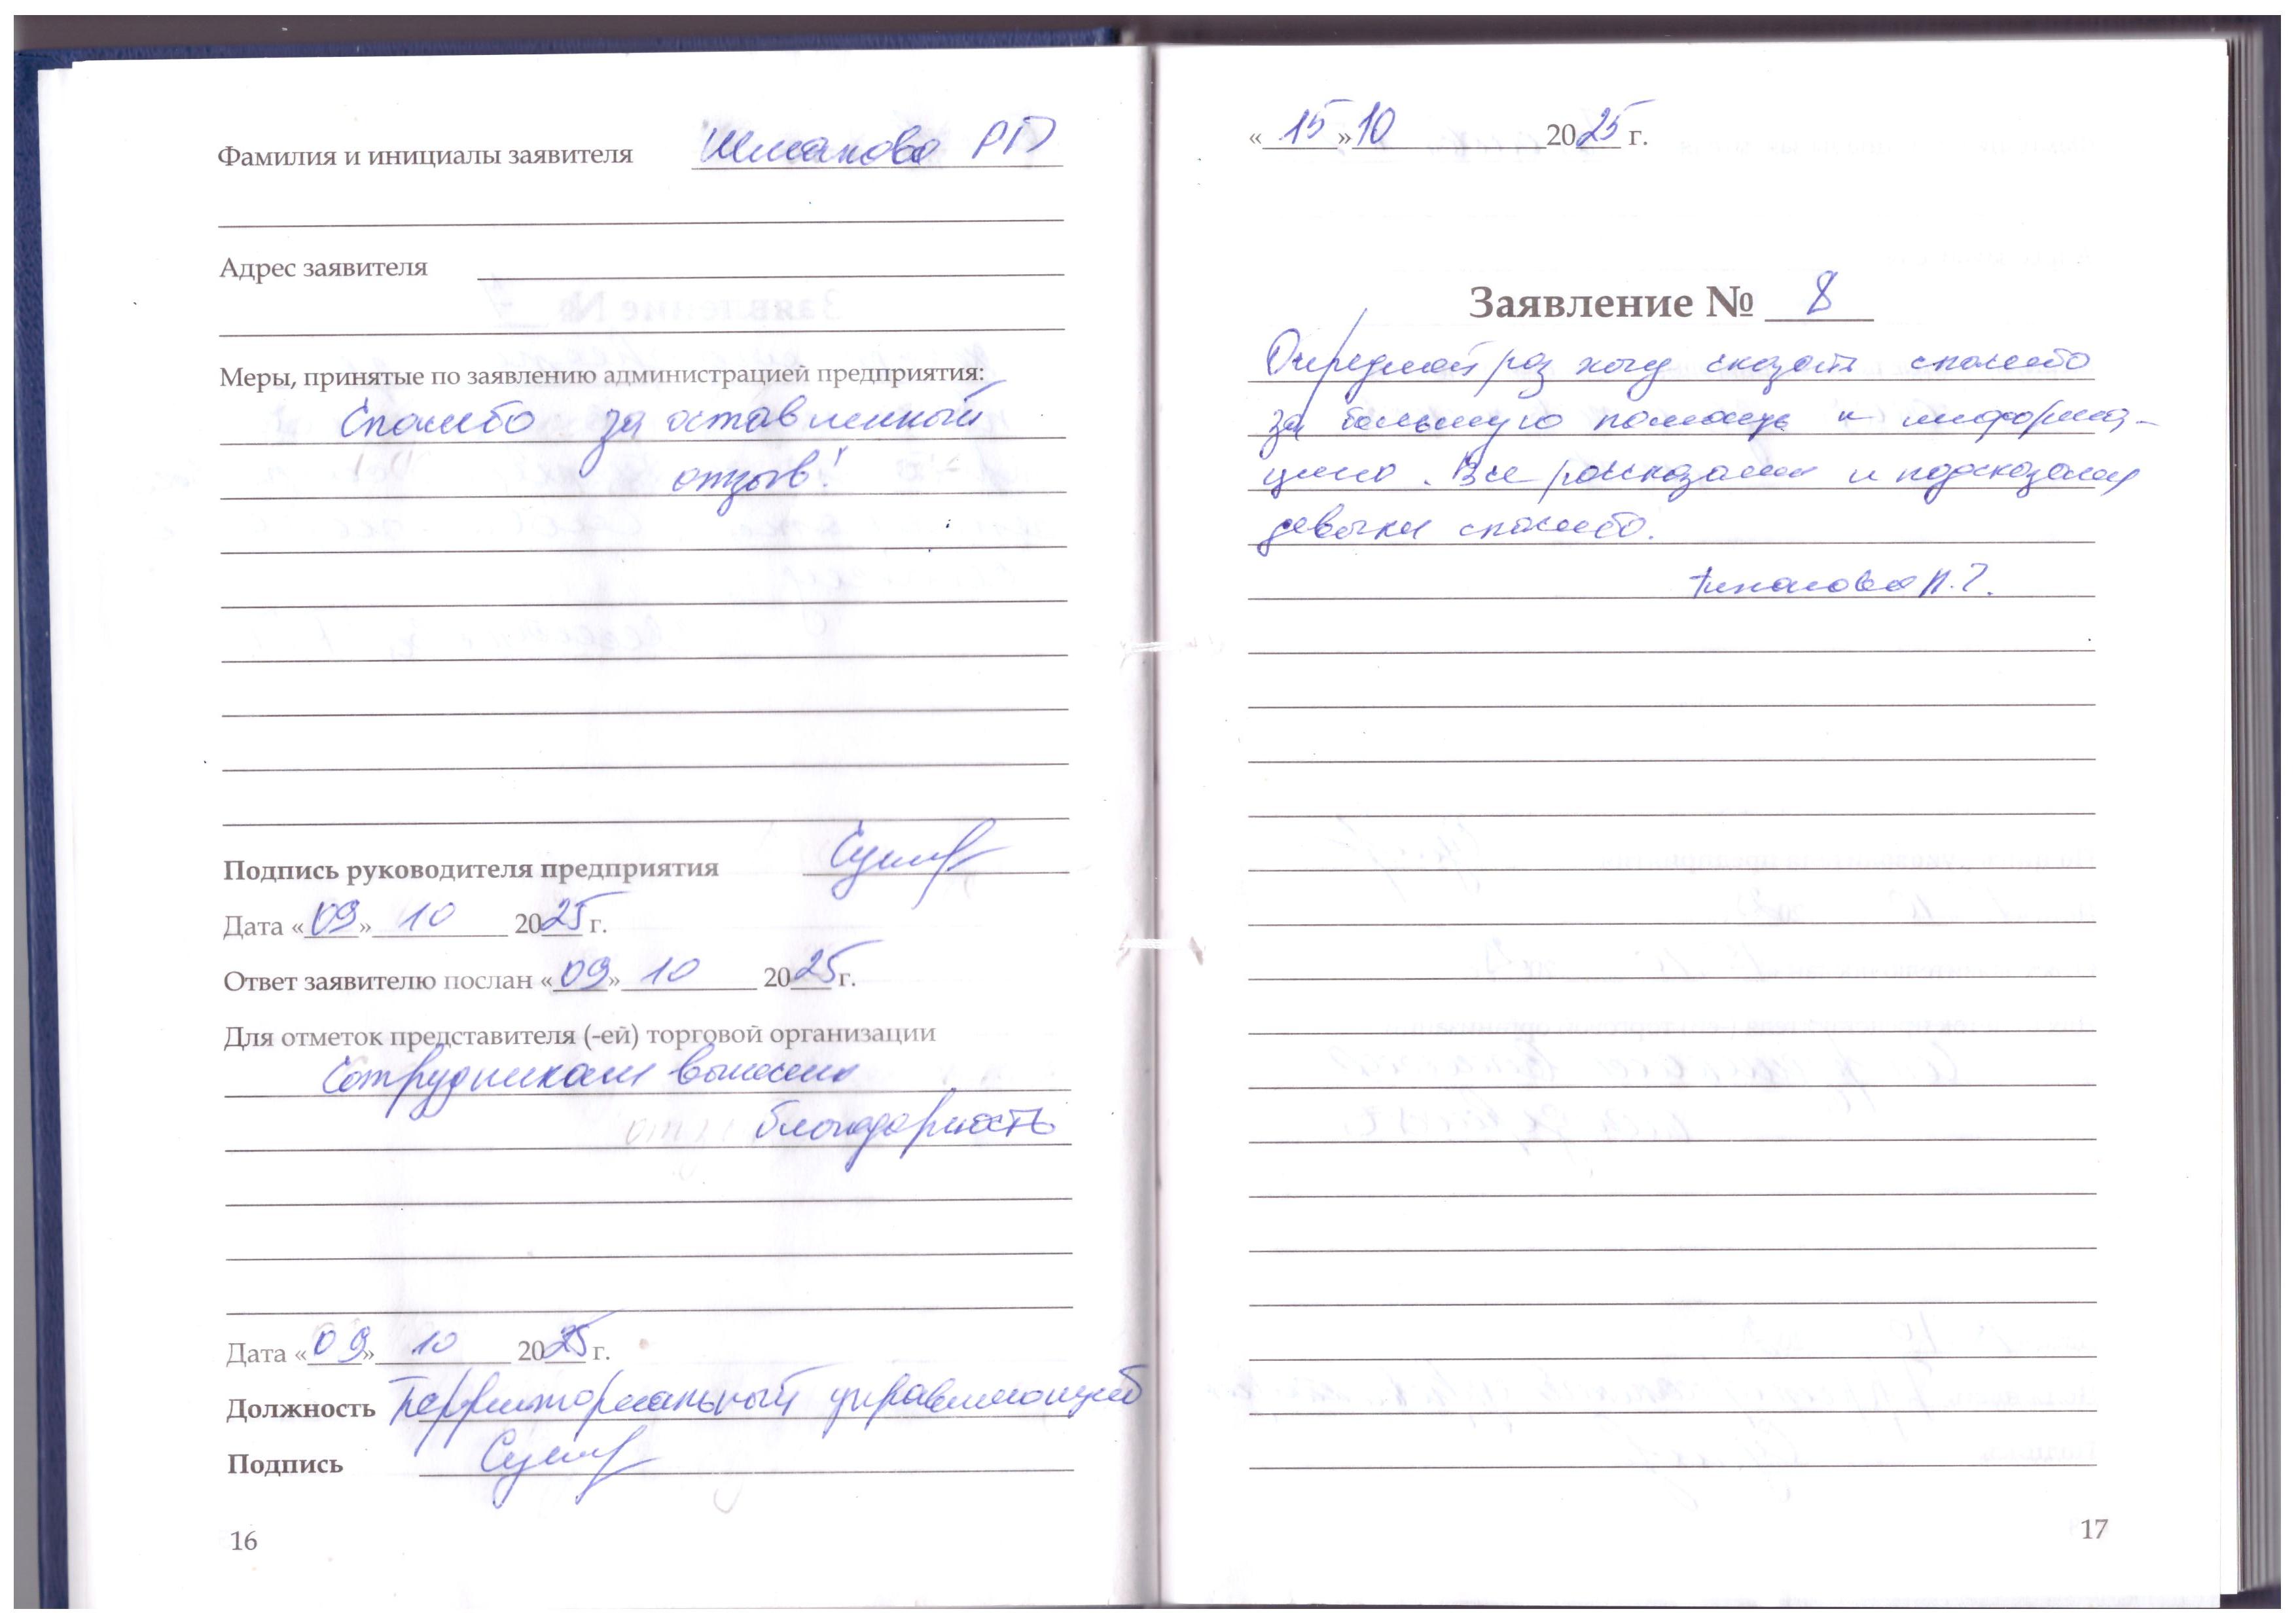 Фамилия и инициалы заявителя Шмакова РГ
Адрес заявителя
Меры, принятые по заявлению администрацией предприятия:
Спасибо за оставленный
отзыв!
Подпись руководителя предприятия
Дата «09» 10 2025 г.
Ответ заявителю послан «09» 10 2025 г.
Для отметок представителя (-ей) торговой организации
Сотрудникам вынесена
благодарность
Дата «09» 10 2025 г.
Должность Территориальный управляющий
Подпись
16
«15» 10 2025 г.
Заявление № 8
Очередной раз хочу сказать спасибо
за большую помощь и информа-
цию. Все рассказали и подсказали
девочки спасибо.
17